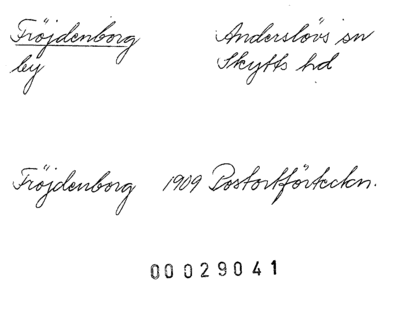 Fröjdenborg Anderslövs sn
by Skytts hd
Fröjdenborg 1909 Postortförteckn.
00029041